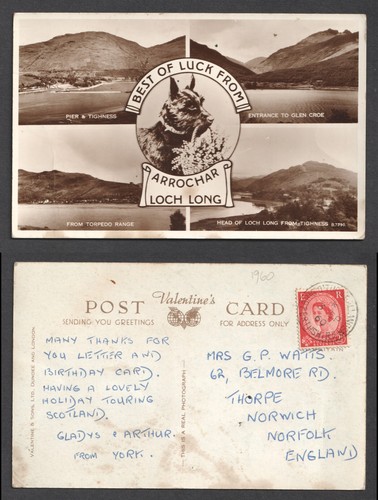 BEST OF LUCK FROM
PIER & TIGHNESS
ENTRANCE TO GLEN CROE
ARROCHAR
LOCH LONG
FROM TORPEDO RANGE
HEAD OF LOCH LONG FROM TIGHNESS
1960
POST Valentine's CARD
SENDING YOU GREETINGS
FOR ADDRESS ONLY
E R
VALENTINE & SONS, LTD., DUNDEE AND LONDON
THIS IS A REAL PHOTOGRAPH
MANY THANKS FOR
YOU LETTER AND
BIRTHDAY CARD.
HAVING A LOVELY
HOLIDAY TOURING
SCOTLAND.
GLADYS & ARTHUR.
FROM YORK.
MRS G. P. WATTS
62, BELMORE RD.
THORPE
NORWICH
NORFOLK
ENGLAND